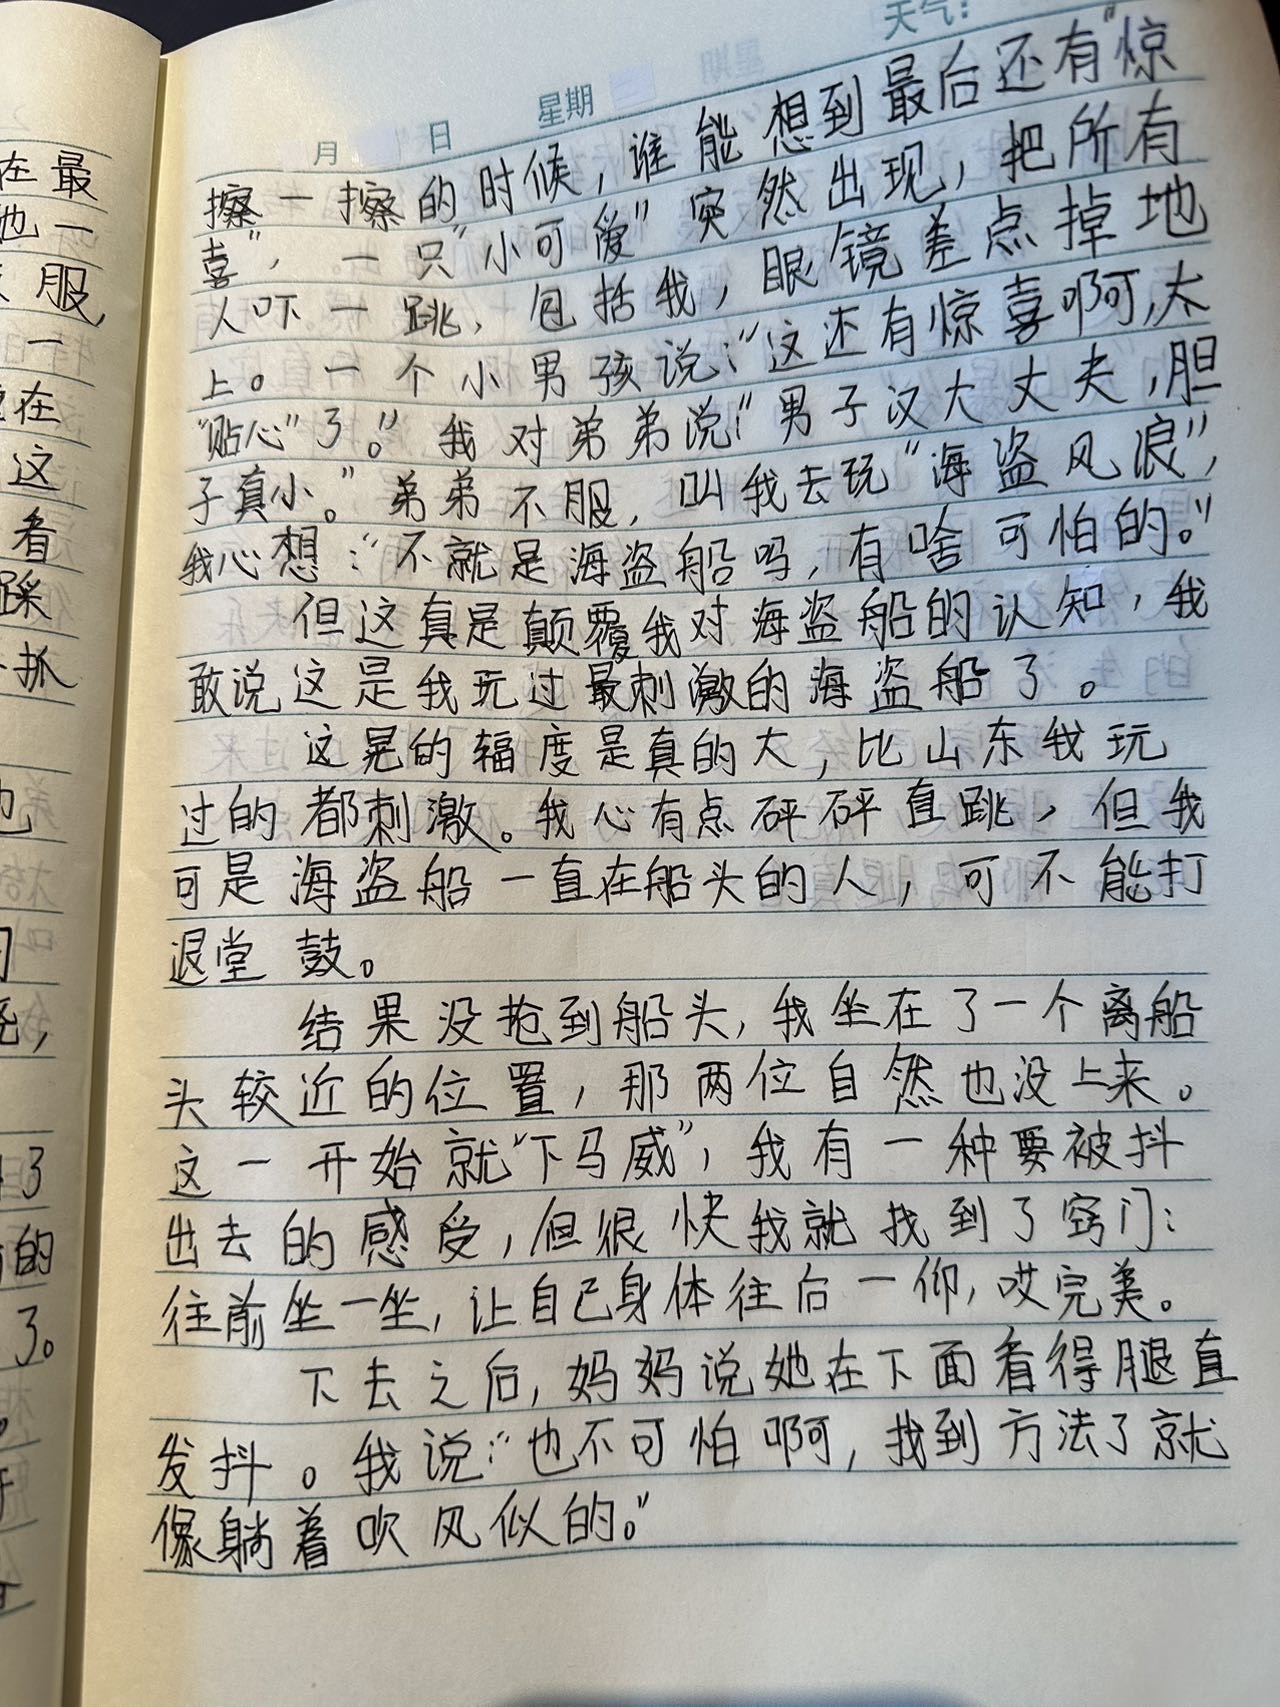 天气：
月 日 星期
擦一擦的时候，谁能想到最后还有“惊
喜”，一只“小可爱”突然出现，把所有
人吓一跳，包括我，眼镜差点掉地
上。一个小男孩说：“这还有惊喜啊，太
“贴心”了。”我对弟弟说：“男子汉大丈夫，胆
子真小。”弟弟不服，叫我去玩“海盗风浪”，
我心想：“不就是海盗船吗，有啥可怕的。”
但这真是颠覆我对海盗船的认知，我
敢说这是我玩过最刺激的海盗船了。
这晃的辐度是真的大，比山东我玩
过的都刺激。我心有点砰砰直跳，但我
可是海盗船一直在船头的人，可不能打
退堂鼓。
结果没抢到船头，我坐在了一个离船
头较近的位置，那两位自然也没上来。
这一开始就“下马威”，我有一种要被抖
出去的感受，但很快我就找到了窍门：
往前坐一坐，让自己身体往后一仰，哎完美。
下去之后，妈妈说她在下面看得腿直
发抖。我说：“也不可怕啊，找到方法了就
像躺着吹风似的。”
在最
他一
服，
一
在
这
看
踩
抓
也
了
的
了。